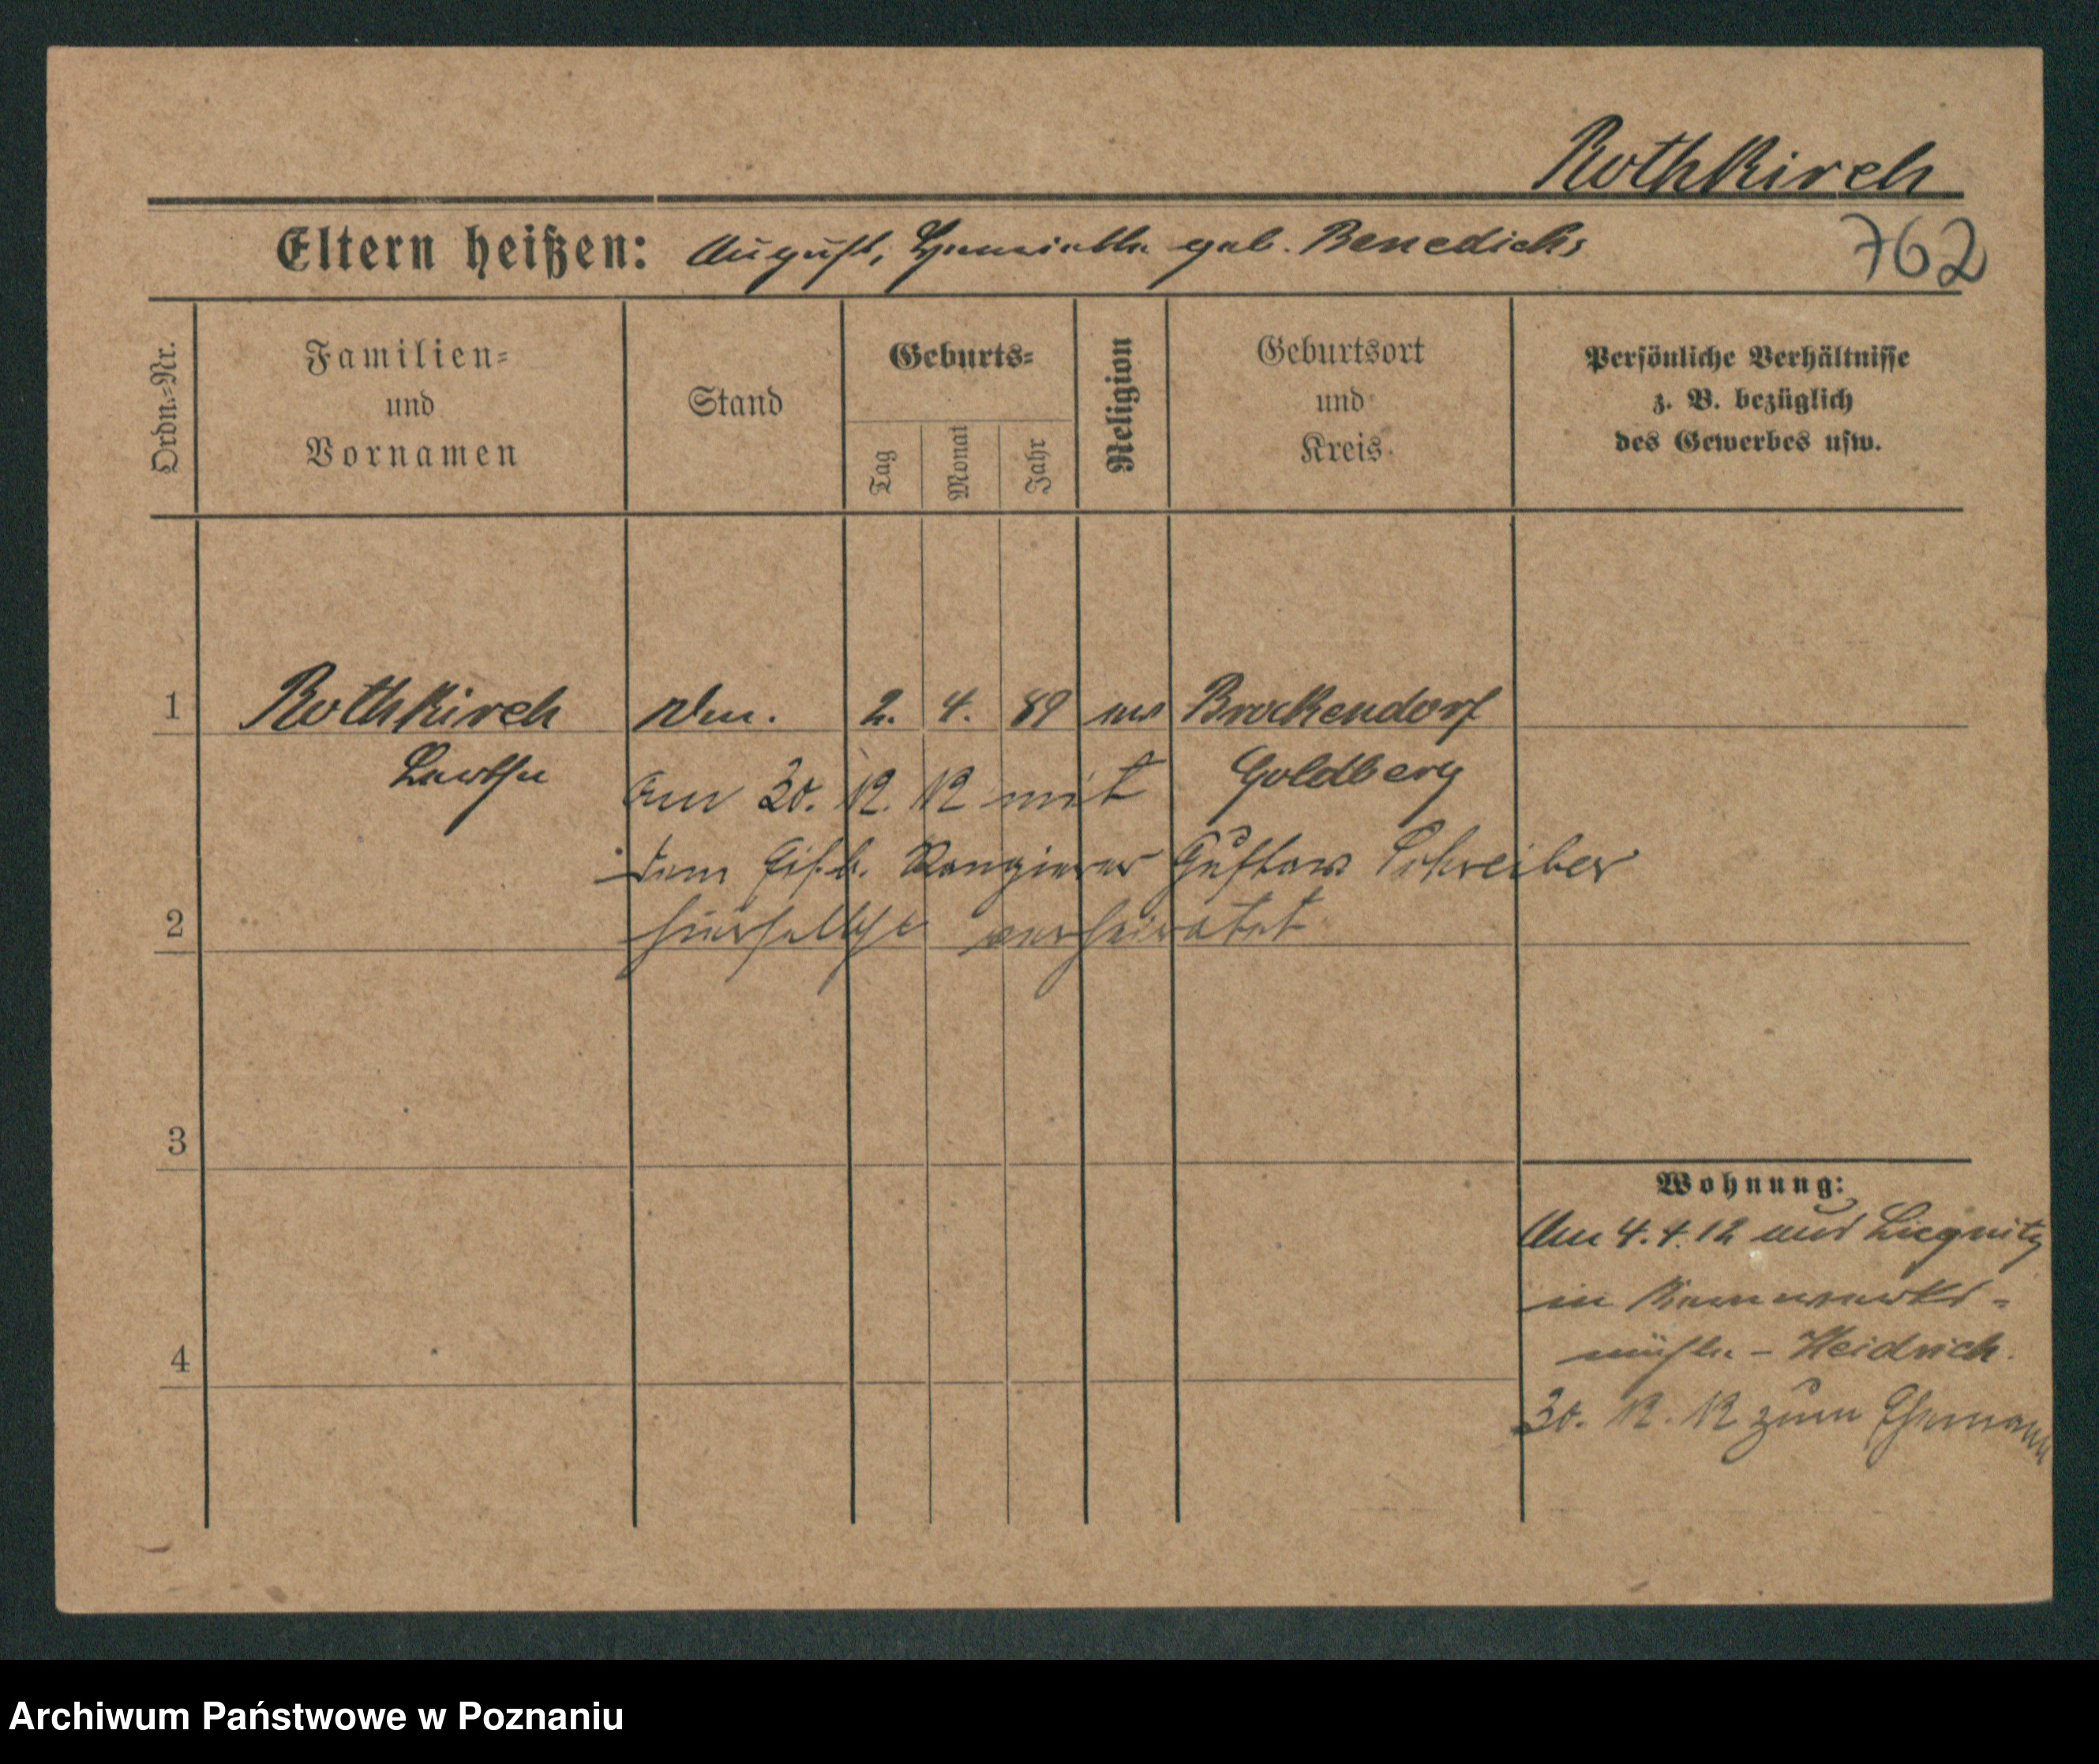 Rothkirch
Eltern heißen: August, Henriette geb. Benedichs
762
Ordn.-Nr.
Familien-
und
Vornamen
Stand
Geburts-
Tag
Monat
Jahr
Religion
Geburtsort
und
Kreis
Persönliche Verhältnisse
z. B. bezüglich
des Gewerbes usw.
1 Rothkirch 2. 4. 89 ev Brockendorf
Bertha Goldberg
am 30. 12. 12 mit
dem Eis.b. Rangierer Gustav Schreiber
2 hierselbst verheiratet
3
4
Wohnung:
Am 4.4.12 aus Liegnitz
in
mühle - Heidrich.
30. 12. 12 zum Ehemann
Archiwum Państwowe w Poznaniu